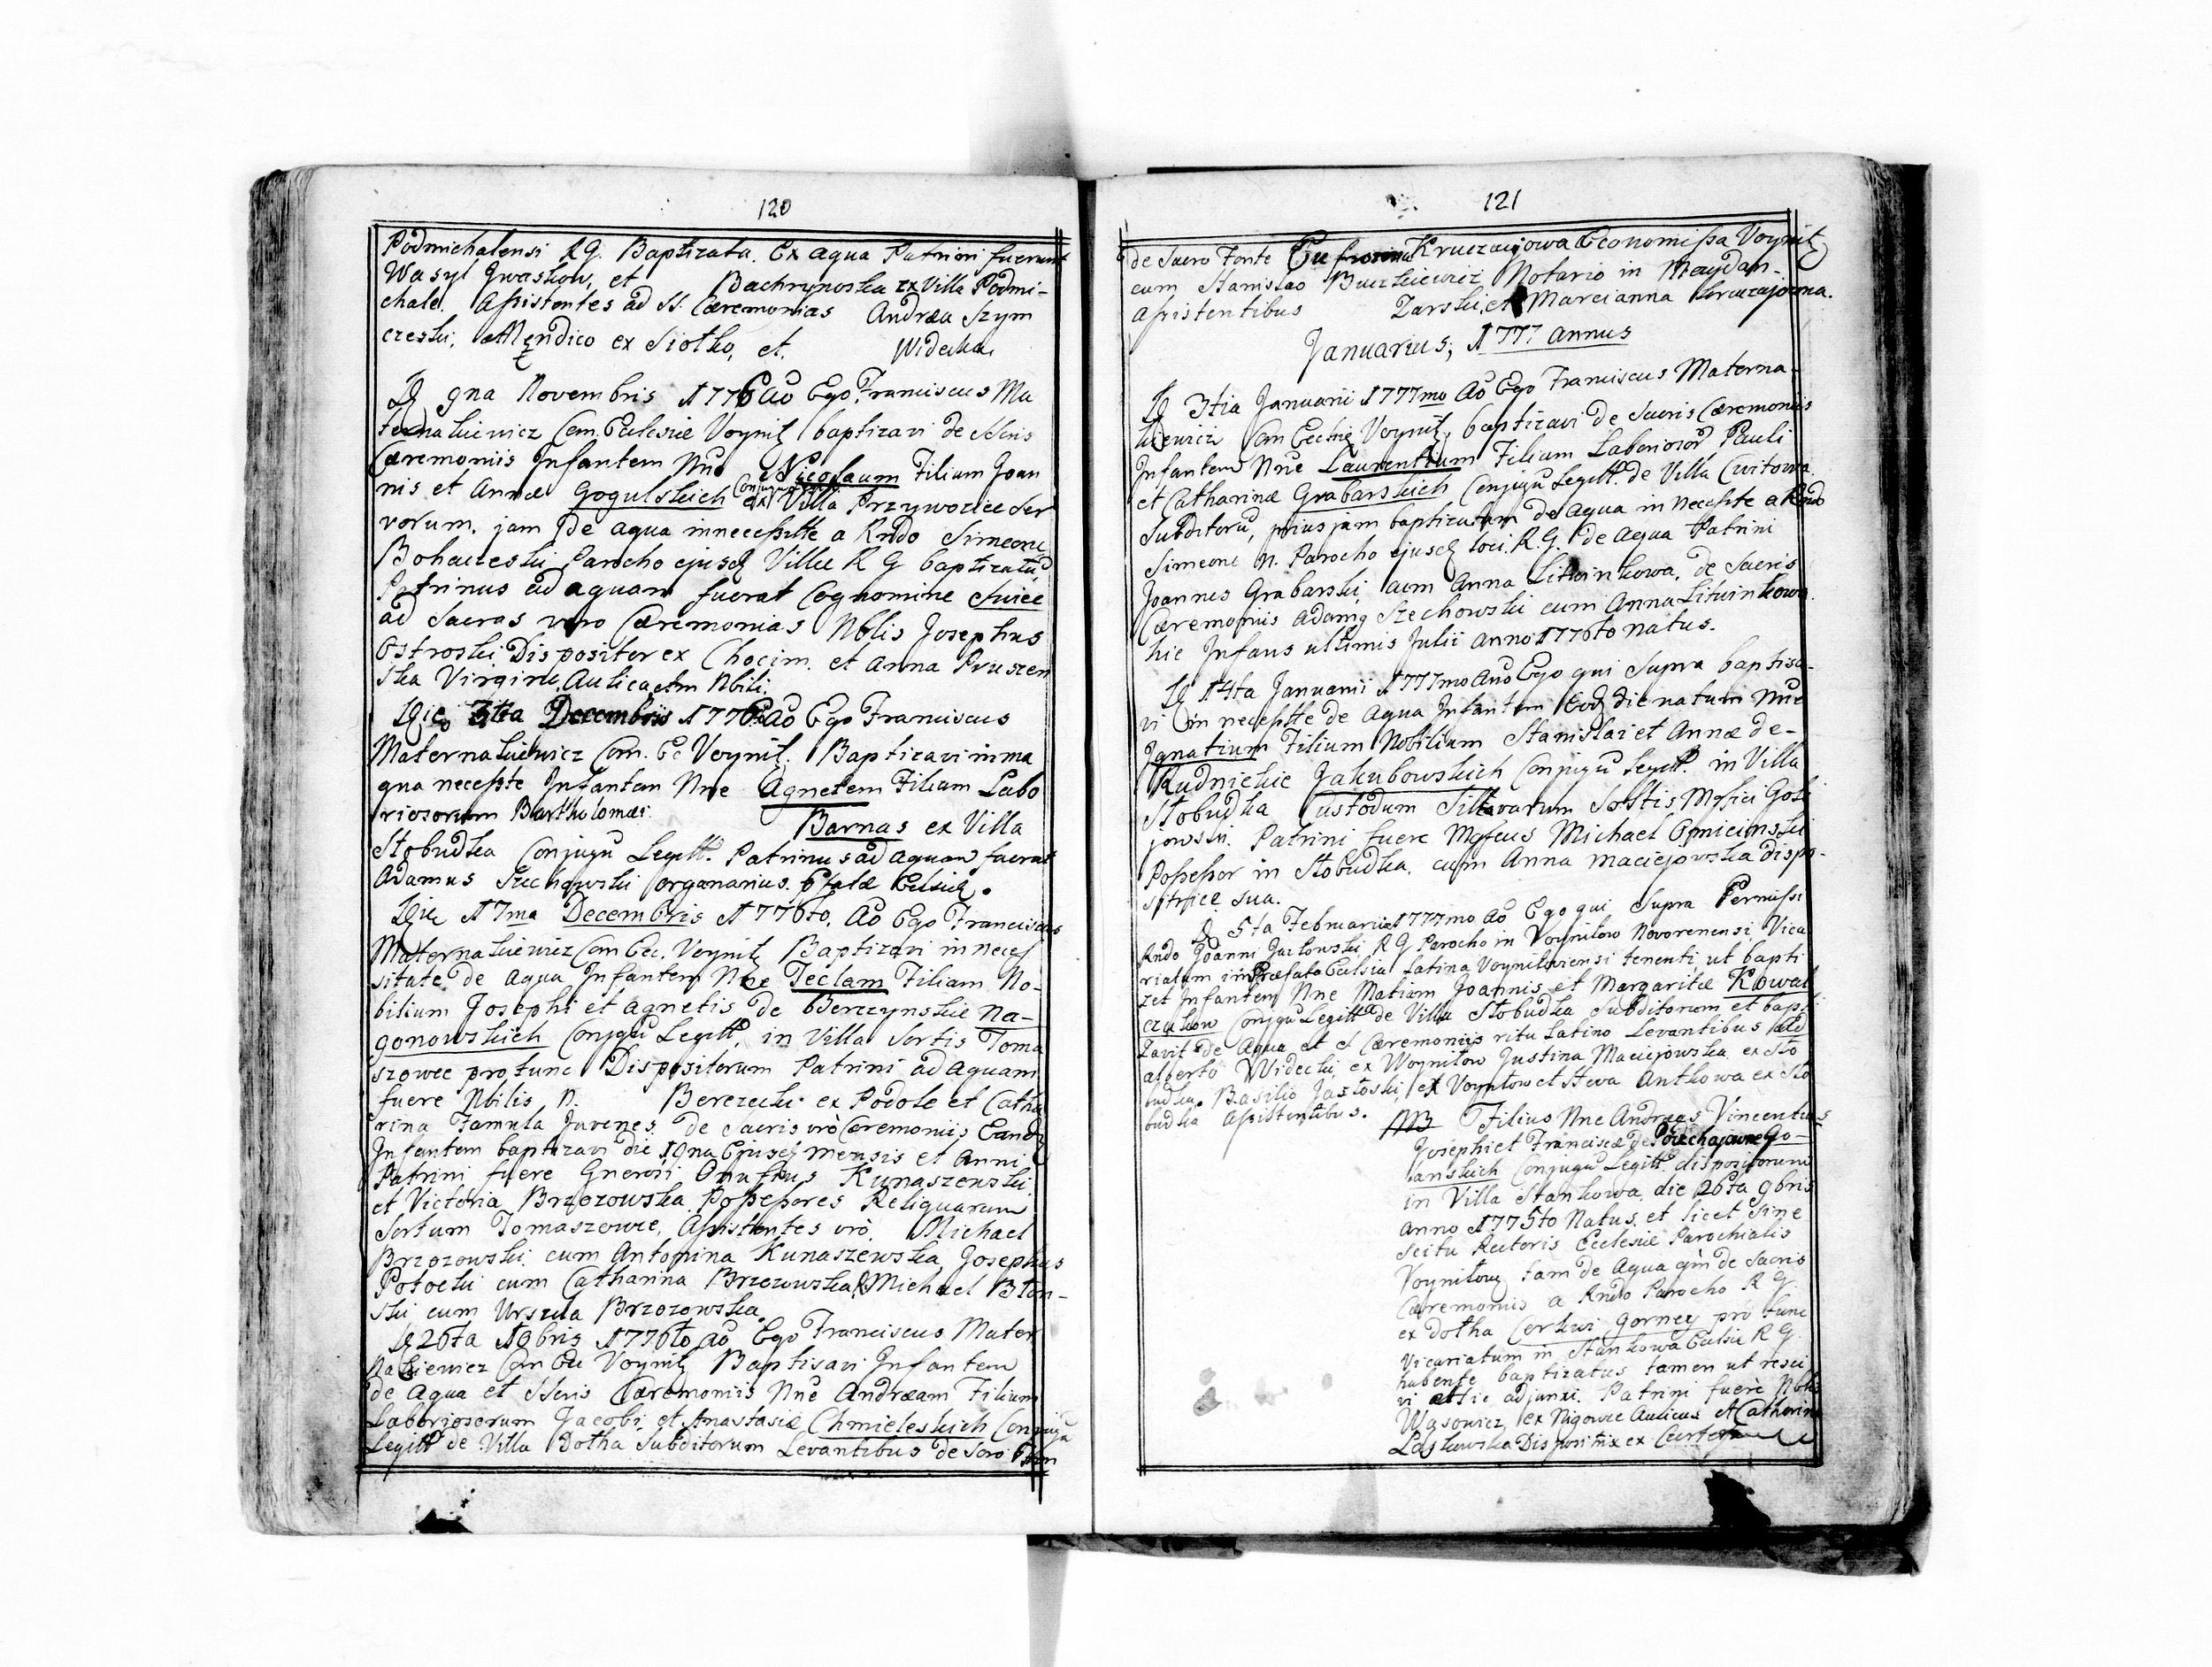 120
Podmichalensi R.G. Baptizata. Ex aqua Patrini fuerunt
Wasyl Jwaskow, et Bachrynoska ex Villa Podmi-
chale. Assistentes ad SS. Cæremonias Andræa Szym
czeski, Mendico ex Siotko, et. Widecka
D 9na Novembris 1776 Aõ Ego Franciscus Ma
ternakiewicz Com. Ecclesiæ Voynil baptizavi de SSris
Cæremoniis Infantem Nne Nicolaum Filium Joan
nis et Annæ Gogulskich Conjugu ex Villa Przywoziec Ser
vorum. jam de aqua in necessitte a Rndo Simeone
Parocho ejusd Villæ R G baptizatu
Patrinus ad aquam fuerat Cognomine
ad Sacras vero Cæremonias Nblis Josephus
Ostroski Dispositor ex Chocim. et Anna Pruszen
ska Virgine Aulica Nbili.
Die 3tia Decembris 1776 Aõ Ego Franciscus
Maternakiewicz Com. Ec Voynil. Baptizavi in ma
gna necesste Infantem Nne Agnetem Filiam Labo
riosorum Bartholomæi Barnas ex Villa
Stobudka Conjugu Legitt. Patrinus ad aquam fuerat
Adamus organarius
Die 17ma Decembris 1776to. Aõ Ego Franciscus
Maternakiewicz Com Ecc. Voynil Baptizavi in neces
sitate de Aqua Infantem Nne Teclam Filiam No-
bilium Josephi et Agnetis de Berczynskie Na-
gonowskich Conjgu Legitt. in Villa Sortis Toma
szowce pro tunc Dispositorum Patrini ad Aquam
fuere Nbilis N. Berezecki ex Podole et Catha
rina Famula Juvenes. de Sacris vrò Cæremoniis Eand
Infantem baptizavi die 19na Ejusd mensis et Anni
Patrini fuere Gnerosi Onufrius Kunaszewski
et Victoria Brzozowska Possessores Reliquarum
Sortum Tomaszowce, Assistentes vrò. Michael
Brzozowski cum Antonina Kunaszewska, Josephus
Potocki cum Catharina Brzozowska & Michael Blon-
ski cum Urszula Brzozowska.
D 26ta Xbris 1776to Aõ Ego Franciscus Mater
nakiewicz Com Ecc Voynil Baptisavi Infantem
de Aqua et SSris Cæremoniis Nne Andræam Filium
Laboriosorum Jacobi et Anastasiæ Chmieleskich Conjugu
Legitt de Villa Dotha Subditorum Levantibus de Sacro
121
de Sacro Fonte Eufrosina Kruczajowa Economissa Voynil
cum Stanislao Notario in Maydan.
Assistentibus Zarski, et Marcianna Kruczajowna.
Januarius, 1777 annus
D 3tia Januarii 1777mo Aõ Ego Franciscus Materna-
kiewicz Com Ecclie Voynil. baptizavi de Sacris Cæremoniis
Infantem Nne Laurentium Filium Laborioso Pauli
et Catharinæ Grabarskich Conjugu Legitt. de Villa Cwitowa
Subditoru, prius jam baptizatum de aqua in necesste a Rndo
Simeone N. Parocho ejusd loci. R.G. de Aqua Patrini
Joannes Grabarski cum Anna Litwinkowa, de Sacris
Cæremoniis Adamg Szechowski cum Anna Litwinkowa.
hic Infans ultimis Julii Anno 1776to natus.
D 14ta Januarii 1777mo Anõ Ego qui Supra baptisa-
vi in necesstte de Aqua Infantem Eod die natum Nne
Ignatium Filium Nobilium Stanislai et Annæ de-
Rudnickie Jakubowskich Conjugu Legitt. in Villa
Stobudka Custodum Sortis
jowski. Patrini fuere Michael
Possessor in Stobudka. cum Anna Maciejowska dispo-
sitrice sua.
D 5ta Februarii 1777mo Aõ Ego qui Supra Permissi
Rndo Joanni R G Parocho in Voynilow Novorenensi Vica
riatum in Præfata Ecclsia Latina Voynilowiensi tenenti ut bapti
zet Infantem Nne Matiam Joannis et Margaritæ Kowal
czukow Conjgu Legitt de Villa Stobudka Subditorum et bapt
zavit de Aqua et S Cæremoniis ritu Latino Levantibus
Alberto Widecki, ex Woynilow Justina Maciejowska ex Sto
budka. Basilio ex Voynilow et Heva Antkowa ex Sto
budka Assistentibus.
NB Filius Nne Andreas Vincentius
Josephi et Franciscæ de Go-
lanskich Conjugu Legitt. dispositorum
in Villa Stankowa. die 26ta 9bris
Anno 1775to Natus. et licet Sine
Scitu Rectoris Ecclesiæ Parochialis
Voynilow tam de Aqua qm de Sacris
Cæremoniis a Rndo Parocho R G.
ex Dotha Cerkwi Gorney pro tunc
Vicariatum in Stankowa Ecclsia R G
habente baptizatus tamen ut resci
vi et sic adjunxi. Patrini fuere Nblis
Wąsowicz ex Nigowce Aulicus et Catharina
Laskowska Dispositrix ex